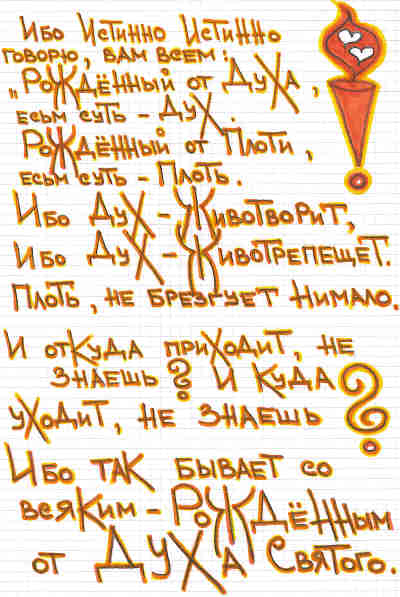 Ибо Истинно Истинно
говорю, вам всем:
„Рождённый от Духа,
есьм суть – Дух.
Рождённый от Плоти,
есьм суть – Плоть.
Ибо Дух – Животворит,
Ибо Дух – Животрепещет.
Плоть, не брезгует нимало.
И откуда приходит, не
знаешь? И куда
уходит, не знаешь?
Ибо так бывает со
всяким – Рождённым
от Духа Святого.